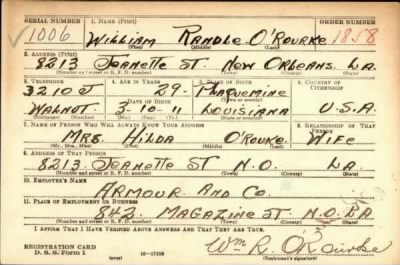 SERIAL NUMBER 1. NAME (Print) ORDER NUMBER
1006 WILLIAM RANDLE O'ROURKE 1858
(First) (Middle) (Last)
2. ADDRESS (Print)
8213 JEANETTE ST. NEW ORLEANS. LA.
(Number and street or R. F. D. number) (Town) (County) (State)
3. TELEPHONE 4. AGE IN YEARS 5. PLACE OF BIRTH 6. COUNTRY OF CITIZENSHIP
3210 J 29- PLAQUEMINE
DATE OF BIRTH (Town or county)
WALNUT 3-10-11 LOUISIANA U.S.A.
(Exchange) (Number) (Mo.) (Day) (Yr.) (State or country)
7. NAME OF PERSON WHO WILL ALWAYS KNOW YOUR ADDRESS 8. RELATIONSHIP OF THAT PERSON
MRS. HILDA O'ROURKE WIFE
(Mr., Mrs., Miss) (First) (Middle) (Last)
9. ADDRESS OF THAT PERSON
8213 JEANETTE ST N.O. LA.
(Number and street or R. F. D. number) (Town) (County) (State)
10. EMPLOYER'S NAME
ARMOUR AND CO.
11. PLACE OF EMPLOYMENT OR BUSINESS
842 MAGAZINE ST. N.O. LA
(Number and street or R. F. D. number) (Town) (County) (State)
I AFFIRM THAT I HAVE VERIFIED ABOVE ANSWERS AND THAT THEY ARE TRUE.
REGISTRATION CARD
D. S. S. Form 1 (over) 16-17105 Wm R. O'Rourke
(Registrant's signature)